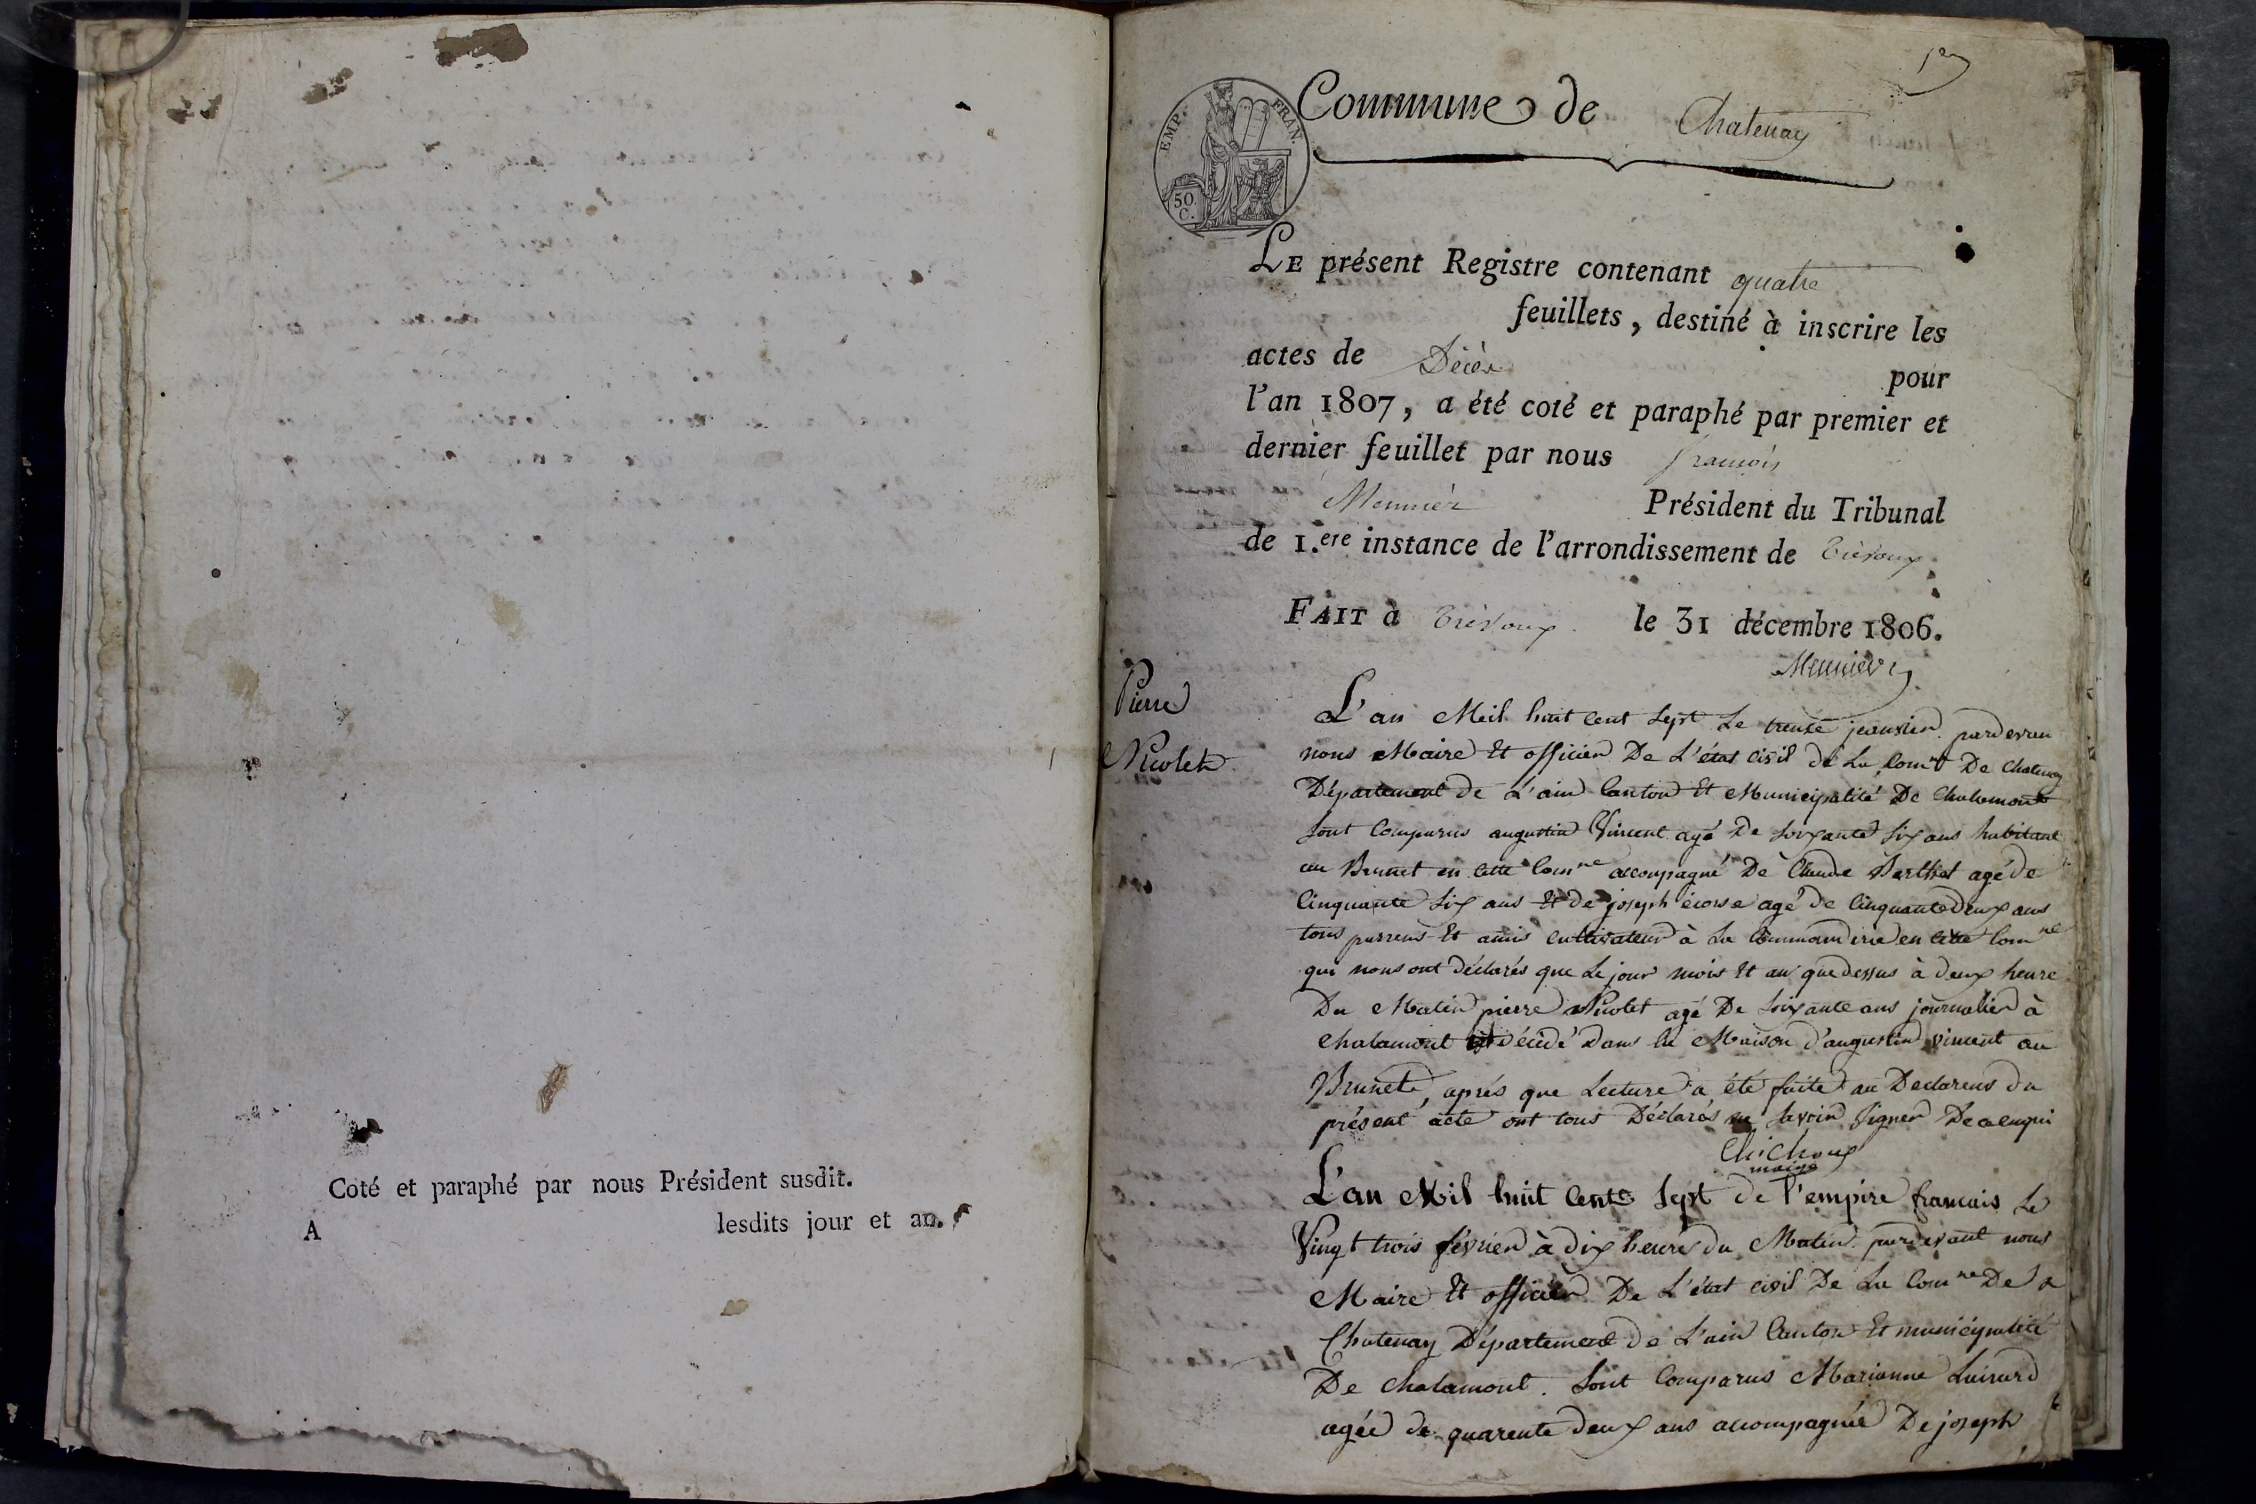 Coté et paraphé par nous Président susdit.
A lesdits jour et an.
Commune de Chatenay
EMP. FRAN.
50 C.
LE présent Registre contenant quatre
feuillets, destiné à inscrire les
actes de Décès pour
l'an 1807, a été coté et paraphé par premier et
dernier feuillet par nous francois
Mennier Président du Tribunal
de 1.ere instance de l'arrondissement de Trévoux
FAIT à Trévoux le 31 décembre 1806.
Mennier
Pierre
Nicolet
L'an Meil huit cent sept Le trente jeanvier pardevan
nous Maire Et officier De L'état civil de La Comne De Chatenay
Département de L'ain Canton Et Municipalité De Chalamont
sont Comparus augustin Vincent agé De soixante six ans habitant
au Brunet en cette Comne accompagné De Claude Barthet agé de
Cinquante six ans Et de joseph écorse agé De Cinquante deux ans
tous parrens Et amis cultivateur à La Commanderie en cette Comne
qui nous ont déclarés que Le jour mois Et an que dessus à deux heure
Du Matin pierre Nicolet agé De soixante ans journalier à
Chalamont est décédé Dans la Maison d'augustin vincent au
Brunet, après que Lecture a été faite au Declarens du
présent acte ont tous Déclarés ne savoir signer De ce enqui
Chichoux
maire
L'an Mil huit Cents sept de l'empire francais Le
Vingt trois février à dix heure du Matin pardevant nous
Maire Et officier De L'état civil De La Comne De
Chatenay Département de L'ain Canton Et municipalité
De Chalamont. sont Comparus Marianne Luisard
agée de quarente deux ans accompagnée De joseph